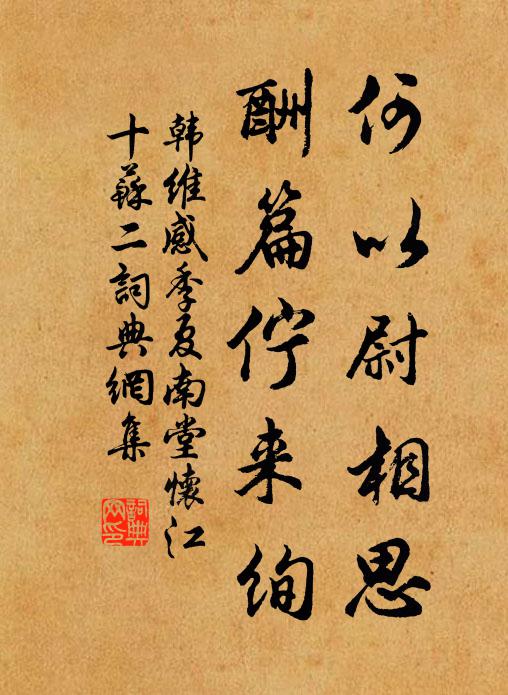 何以尉相思
酬篇佇来绚
韩维感季夏南堂懷江
十蘇二詞典網集
詞典网印